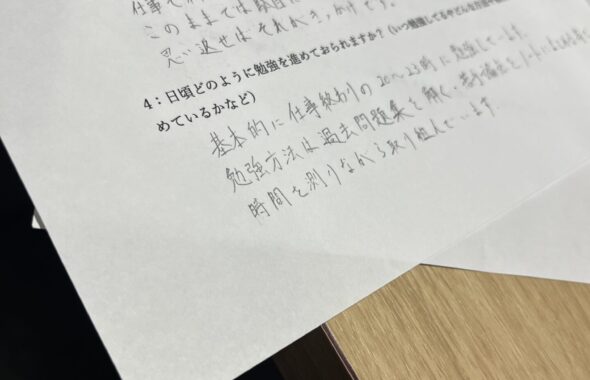 仕事で
このままでは駄目
思い返せばそれがきっかけです。
4：日頃どのように勉強を進めておられますか？（いつ勉強してるかやどんな
めているかなど）
基本的に仕事終わりの20～23時に勉強しています。
勉強方法は過去問題集を解く・苦手論点をノートにまとめ
時間を測りながら取り組んでいます。